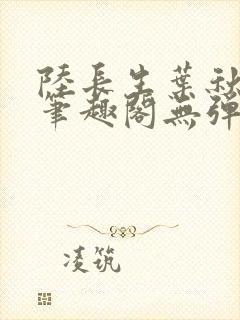 陸長生葉秋
筆趣閣無彈
凌筑